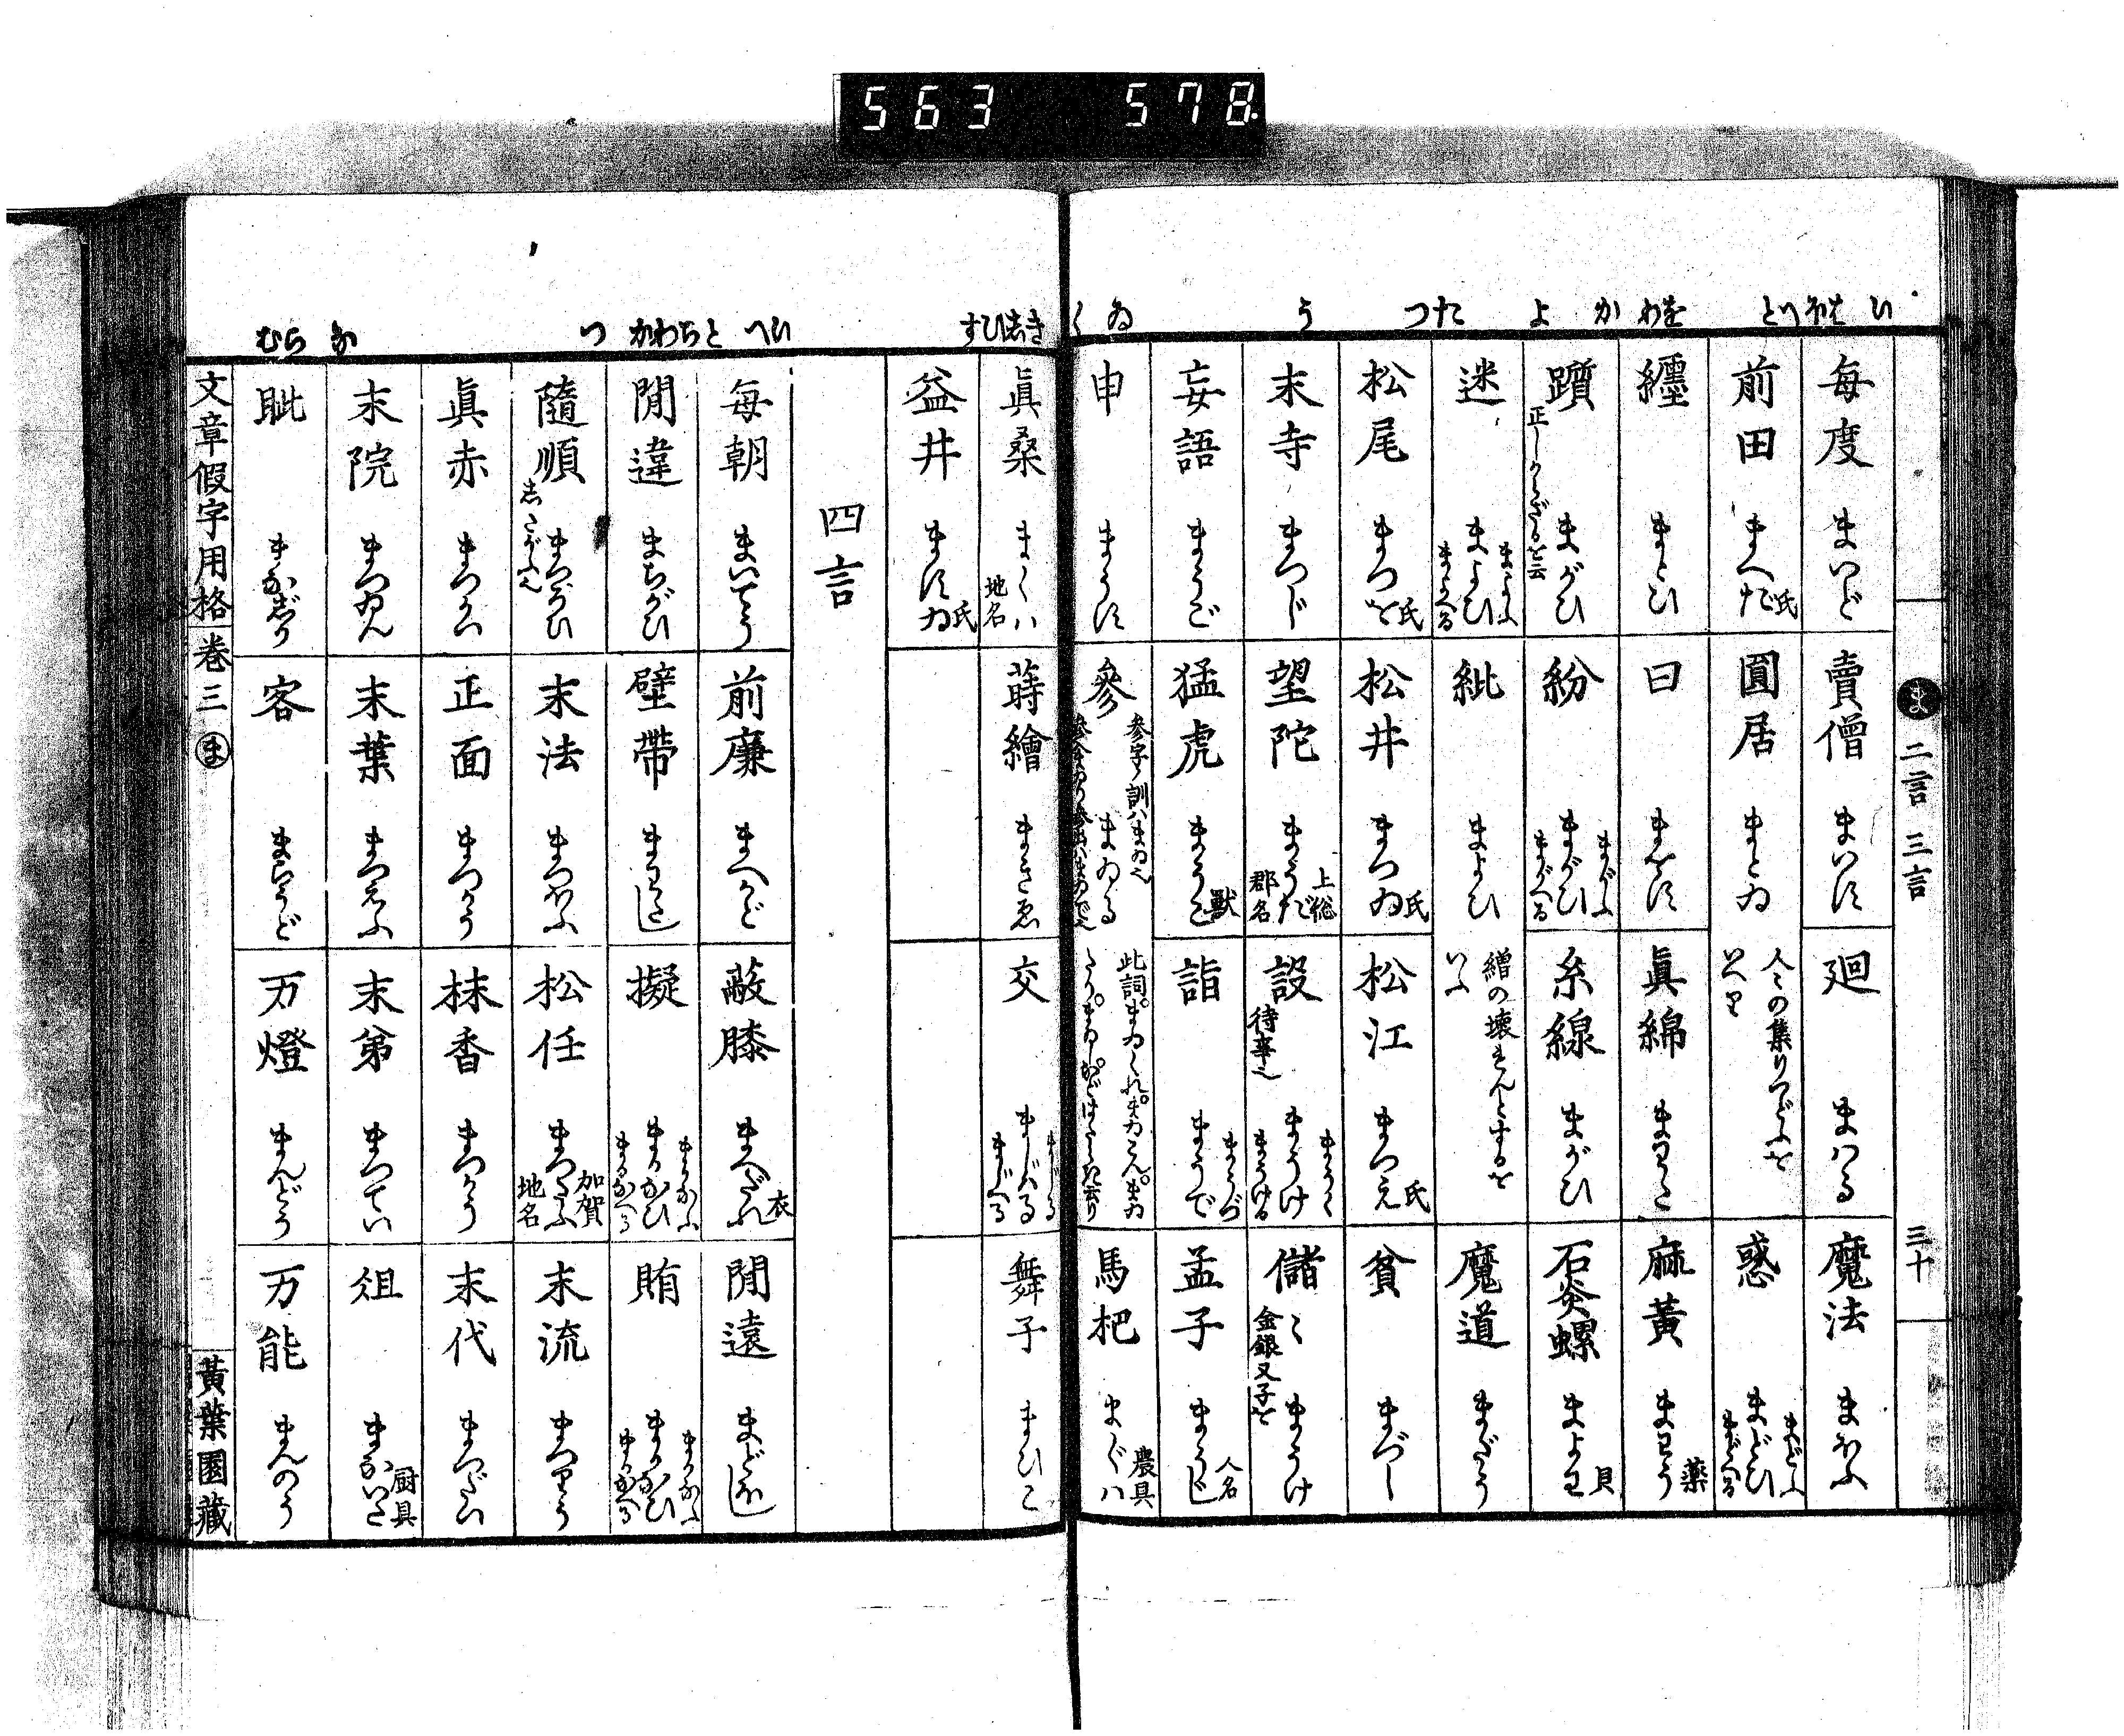 563 578
ま 二言 三言 三十
い はほ へと をわ か よ たつ う ゐ く
毎度 まいど
賣僧 まいす
廻 まハる
魔法 まほふ
前田 まへだ 氏
圓居 まとゐ 人々の集りつどふを いへり
惑 まどひ まどふ まどへる
纒 まとひ
曰 まをす
眞綿 まわた
麻黄 まわう 薬
躓 正しからざるを云 まがひ
紛 まがひ まがふ まがへる
糸線 まがひ
石炎螺 まよわ 貝
迷 まよひ まよふ まよへる
紕 まよひ 繒の壊れんとするを いふ
魔道 まだう
松尾 まつを 氏
松井 まつゐ 氏
松江 まつえ 氏
貧 まづし
末寺 まつじ
望陀 まうだ 上総 郡名
設 待事也 まうけ まうく まうける
儲 〻 金銀又子を まうけ
妄語 まうご
猛虎 まうこ 獣
詣 まうで まうづ
孟子 まうじ 人名
申 まうす
參 参字ノ訓ハまゐ也 まゐる
馬杷 まぐハ 農具
き しひす
眞桑 まくハ 地名
蒔繪 まきゑ
交 まじハる まじる まじへる
舞子 まひこ
益井 ますゐ 氏
四言
いへ と ちわか つ な らむ
毎朝 まいてう
前廉 まへかど
蔽膝 まへだれ 衣
間遠 まどほし
間違 まちがひ
壁帶 まわたし
擬 まかなひ まかなふ まかなへる
賄 まかなひ まかなふ まかなへる
隨順 したがふ也 まつがひ
末法 まつほふ
松任 まつたふ 加賀 地名
末流 まつりう
眞赤 まつかい
正面 まつかう
抹香 まつかう
末代 まつだい
末院 まつゐん
末葉 まつえふ
末弟 まつてい
俎 まないた 厨具
眦 まなじり
客 まらうど
万燈 まんどう
万能 まんのう
文章假字用格 巻三 ま 黄葉園藏